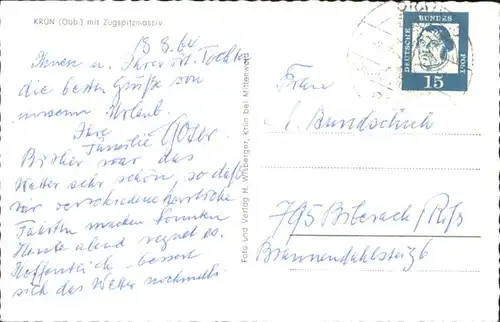 KRÜN (Obb.) mit Zugspitzmassiv
13. 8. 64
Ihnen u. Ihrer Tochter
die besten Grüße von
unserem Urlaub.
Ihre
Familie
Bisher war das
Wetter sehr schön, so daß
wir verschiedene herrliche
Fahrten machen konnten
Heute abend regnet es.
Hoffentlich bessert
sich das Wetter nochmals.
Foto und Verlag H. Wilberger, Krün bei Mittenwald
DEUTSCHE BUNDESPOST
15
Frau
A. Bundschuh
795 Biberach/Riß